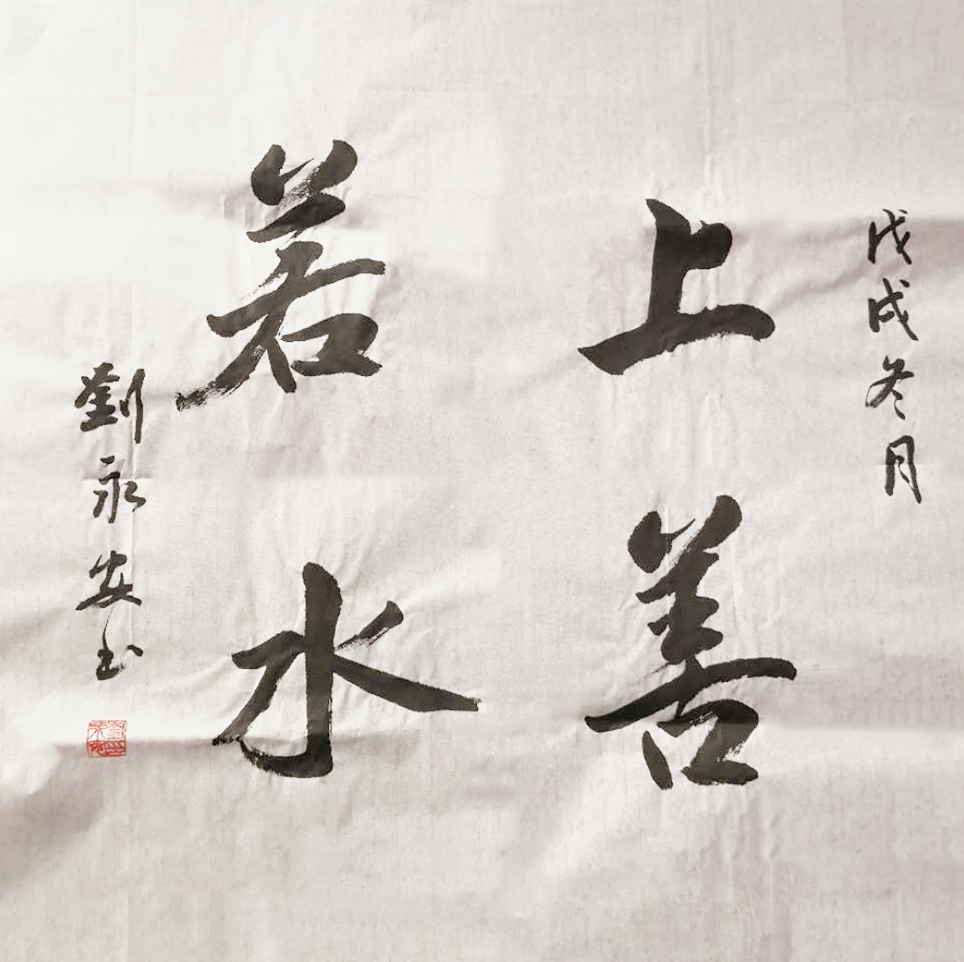 戊戌冬月
上善
若水
劉永安书